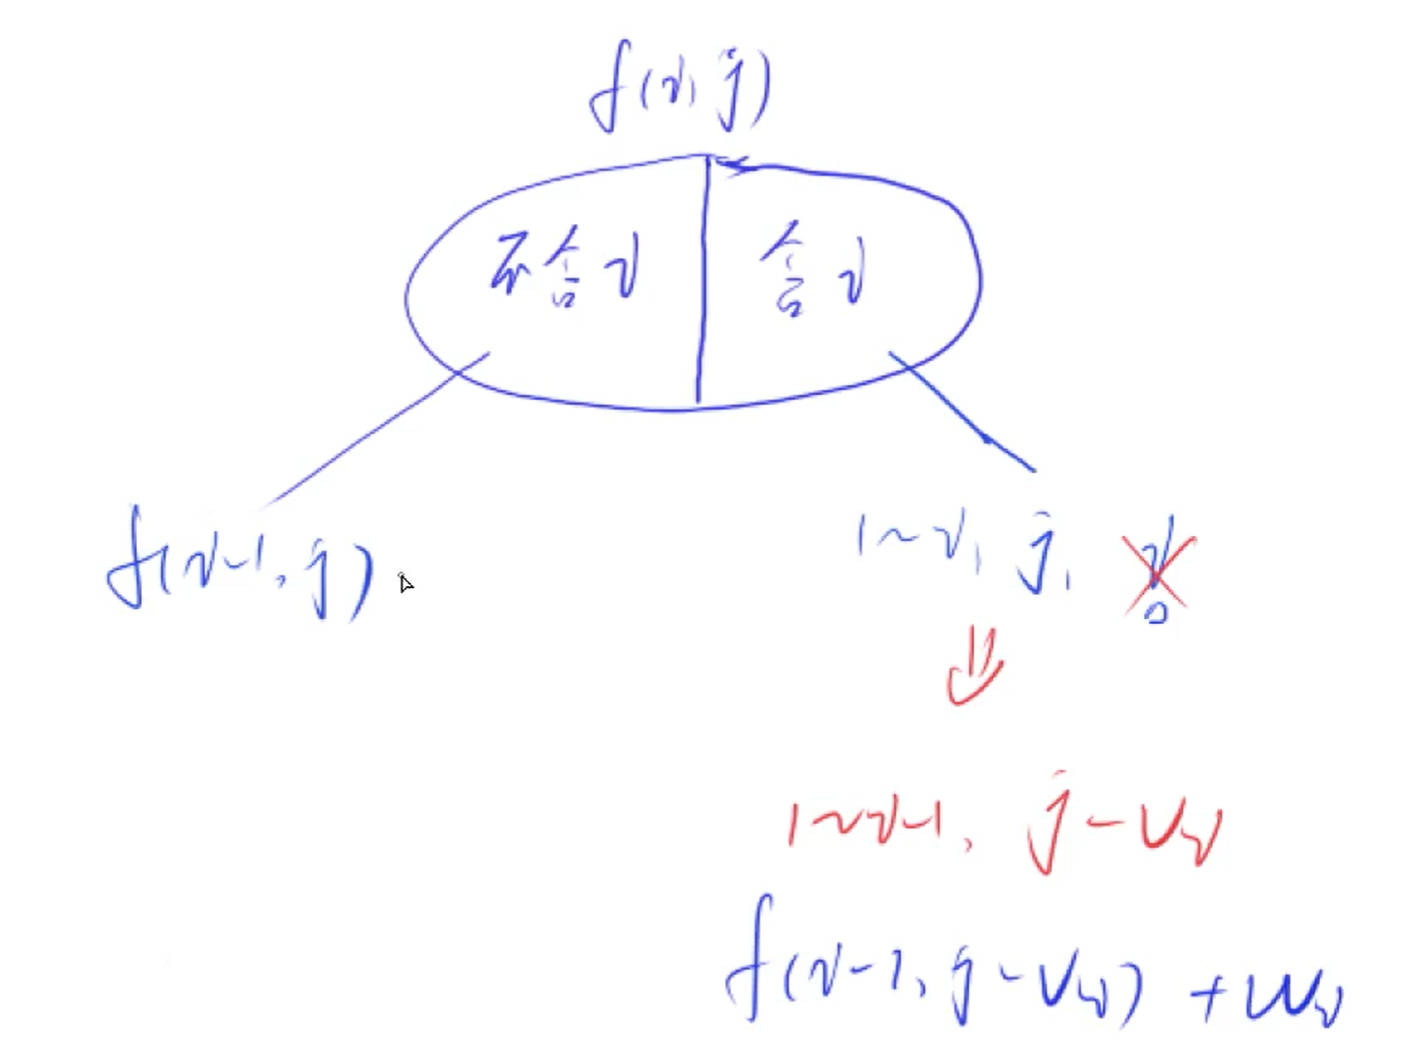 f(i, j)
不含i 含i
f(i-1, j)
1~i, j, i
1~i-1, j-vi
f(i-1, j-vi) + wi